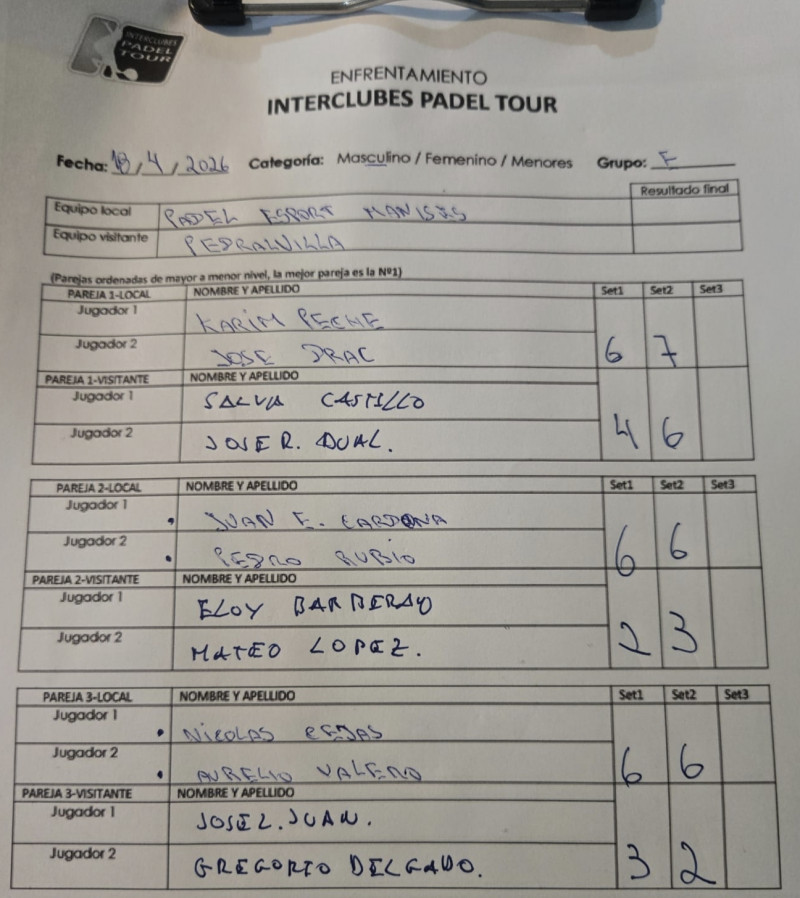 INTERCLUBES
PADEL
TOUR
ENFRENTAMIENTO
INTERCLUBES PADEL TOUR
Fecha: 18/4/2026 Categoría: Masculino / Femenino / Menores Grupo: F
Resultado final
Equipo local PADEL ESPORT MANISES
Equipo visitante PEDRALVILLA
(Parejas ordenadas de mayor a menor nivel, la mejor pareja es la Nº1)
PAREJA 1-LOCAL NOMBRE Y APELLIDO Set1 Set2 Set3
Jugador 1 KARIM PECHE
Jugador 2 JOSE DRAC 6 7
PAREJA 1-VISITANTE NOMBRE Y APELLIDO
Jugador 1 SALVA CASTILLO
Jugador 2 JOSE R. DUAL. 4 6
PAREJA 2-LOCAL NOMBRE Y APELLIDO Set1 Set2 Set3
Jugador 1 JUAN E. CARDONA
Jugador 2 PEDRO RUBIO 6 6
PAREJA 2-VISITANTE NOMBRE Y APELLIDO
Jugador 1 ELOY BARBERAO
Jugador 2 MATEO LOPEZ. 2 3
PAREJA 3-LOCAL NOMBRE Y APELLIDO Set1 Set2 Set3
Jugador 1 NICOLAS
Jugador 2 AURELIO VALERO 6 6
PAREJA 3-VISITANTE NOMBRE Y APELLIDO
Jugador 1 JOSE L. JUAN.
Jugador 2 GREGORIO DELGADO. 3 2